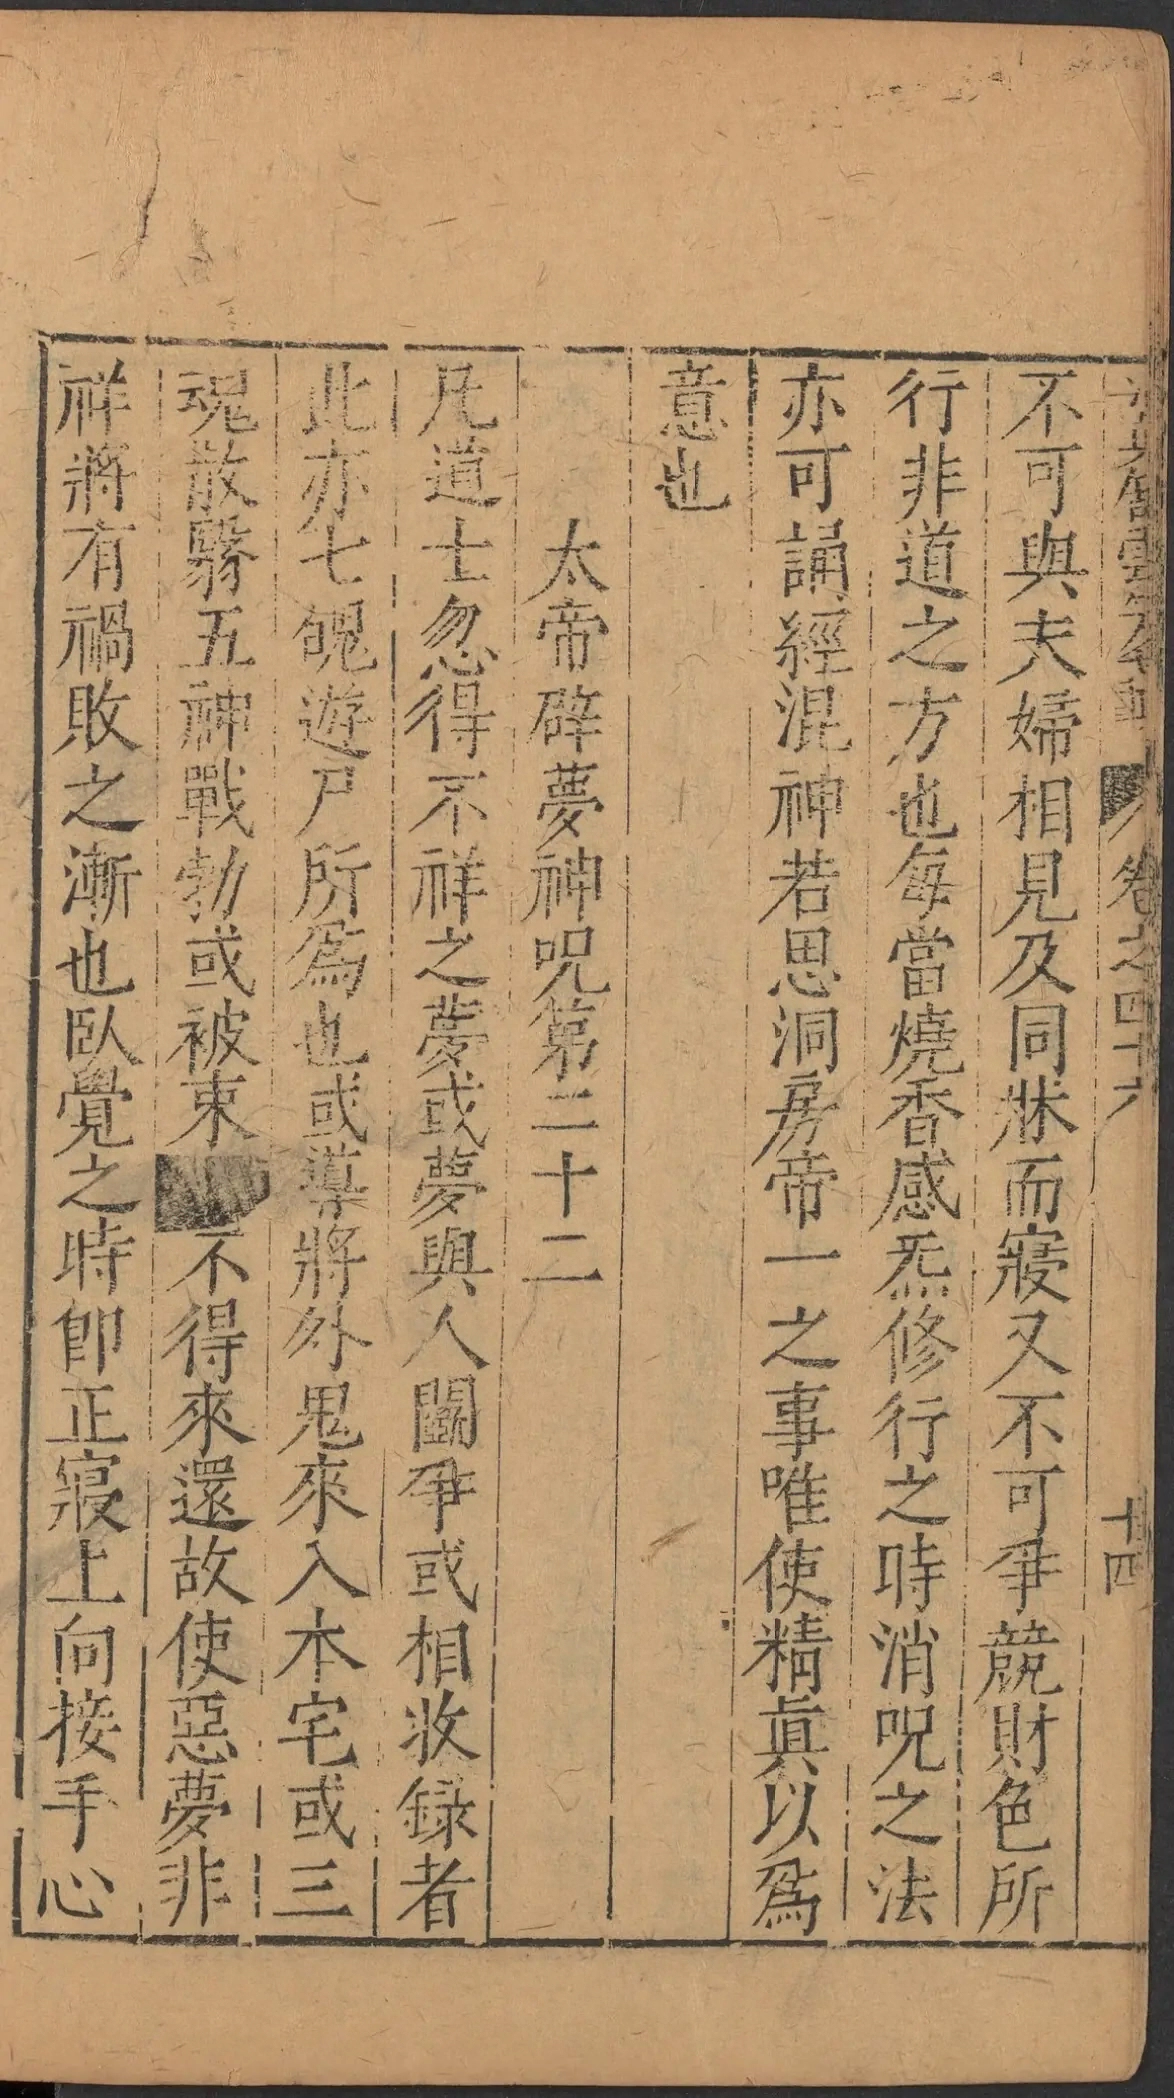 卷之四十六 十四
不可與夫婦相見及同牀而寢又不可爭競財色所
行非道之方也每當燒香感炁修行之時消呪之法
亦可誦經混神若思洞房帝一之事唯使精眞以爲
意也
太帝辟夢神呪第二十二
凡道士忽得不祥之夢或夢與人鬭爭或相收録者
此亦七魄遊尸所爲也或導將外鬼來入本宅或三
魂散翳五神戰勃或被束不得來還故使惡夢非
祥將有禍敗之漸也臥覺之時卽正寢上向接手心